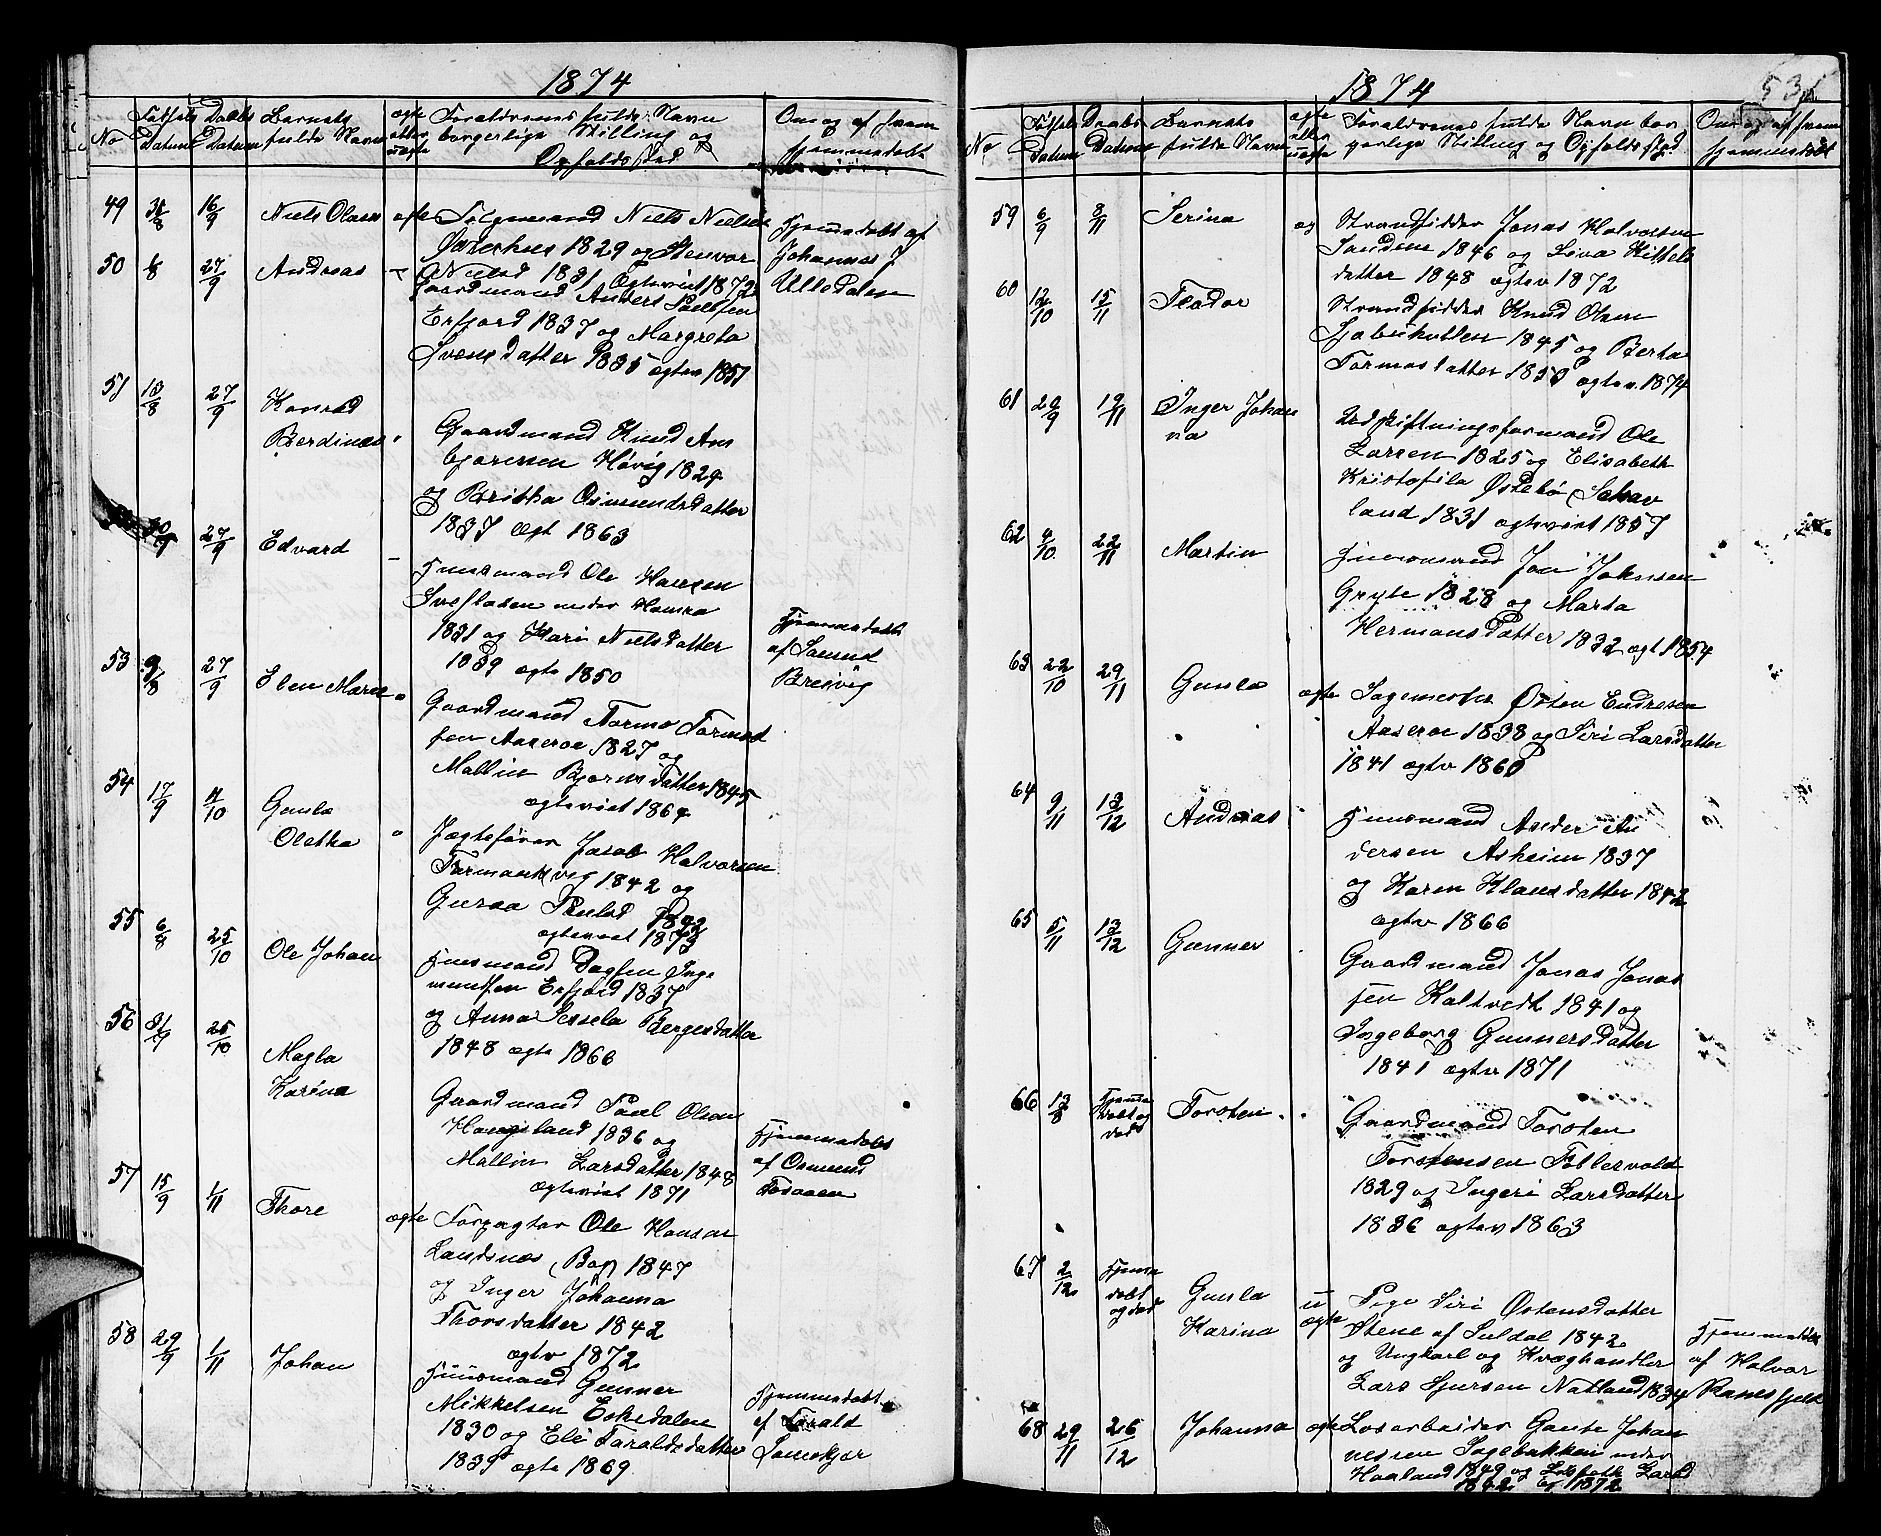 1874
No
Fødsels Datum
Daabs Datum
Barnets fulde Navn
ægte eller uægte
Forældrenes fulde Navn
borgerlige Stilling og
Opholdssted
Om og af hvem
hjemmedøbt
49 31/8 16/9 Niels Olaus ægte Selgemand Niels Nielsen
Østerhus 1829 og Stenvor
Nielsd 1831 Ægteviet 1872
Hjemmedøbt af
Johannes J
Ulledalen
50 1/8 27/9 Andreas Gaardmand Anders Paulsen
Erfjord 1837 og Margreta
Svensdatter 1835 ægtev 1857
51 13/8 27/9 Konrad
Berdines " Gaardmand Knud Asbjørnsen Høvig 1824
og Britha Osmundsdatter
1837 ægt 1863
27/9 Edvard Huusmand Ole Hansen
under Hamra
1821 og Kari Nielsdatter
1839 ægte 1850
Hjemmedøbt
af Samund
Breivig
53 9/8 27/9 Elen Marie " Gaardmand Tormo Tormodsen Aaseroe 1827 og
Mallin Bjørnsdatter 1845
ægteviet 1864
54 17/9 11/10 Gunla
Olethea " Jægtefører Jacob Halvorsen
1842 og
Guroa Paulsd 1842
ægteviet 1873
55 6/8 25/10 Ole Johan Huusmand Dagfin Ingemundsen Erfjord 1837
og Anna Sessela Bergesdatter
1848 ægte 1866
56 31/9 25/10 Magla
Karina Gaardmand Paul Olsen
Haugeland 1836 og
Mallin Larsdatter 1848
ægteviet 1871
Hjemmedøbt
af Osmund
57 15/9 1/11 Thore ægte Forpagter Ole Hansen
Landsnæs 1847
og Inger Johanna
Thorsdatter 1842
ægtv 1872
58 29/9 1/11 Johan Huusmand Gunner
Mikkelsen Eskedalen
1830 og Eli Taraldsdatter
1839 ægte 1869
Hjemmedøbt
af Tarald
1874
No
Fødsels Datum
Daabs Datum
Barnets fulde Navn
ægte eller uægte
Forældrenes fulde Navn bor
gerlige Stilling og Opholdssted
Om og af hvem
hjemmedøbt
59 6/9 8/11 Serina æg Strandsidder Jonas Halvorsen
Sandene 1846 og Siva Kittels
datter 1848 ægtev 1872
60 12/10 15/11 Teodor Strandsidder Knud Olsen
1845 og Berta
Tormosdatter 1853 ægtev. 1874
61 20/9 19/11 Inger Johan
na Udskiftningsformand Ole
Larsen 1825 og Elisabeth
Kristofila Østebø
land 1831 ægteviet 1857
62 4/10 22/11 Martin Huusmand Jon Johnsen
Gryte 1828 og Marta
Hermansdatter 1832 ægt 1854
63 22/10 29/11 Gunla ægte Sagemester Østen Endresen
Aaseroe 1838 og Siri Larsdatter
1841 ægtv 1860
64 9/11 13/12 Andreas Huusmand Ander An
dersen Asheim 1837
og Karen Klausdatter 1842
ægtv 1866
65 5/11 13/12 Gunner Gaardmand Jonas Jonas
sen Kaltvedt 1841 og
Ingeborg Gunnersdatter
1841 ægtv 1871
66 13/8 Hjemme
døbt og
død Torsten Gaardmand Torsten
Torstensen Follervold
1829 og Ingeri Larsdatter
1836 ægtev 1863
67 2/12 Hjemme
døbt
og død Gunla
Karina u
ægte Pige Siri Østensdatter
Stene af Suldal 1842
og Ungkarl og Kvæghandler
Lars Sjursen Natland 1834
Hjemmedøbt
af Halvor
68 29/11 26/12 Johanna ægte Løsarbeider Gaute Johan
nesen Ingebakken under
Haaland 1849 og Larsd
1842 1872